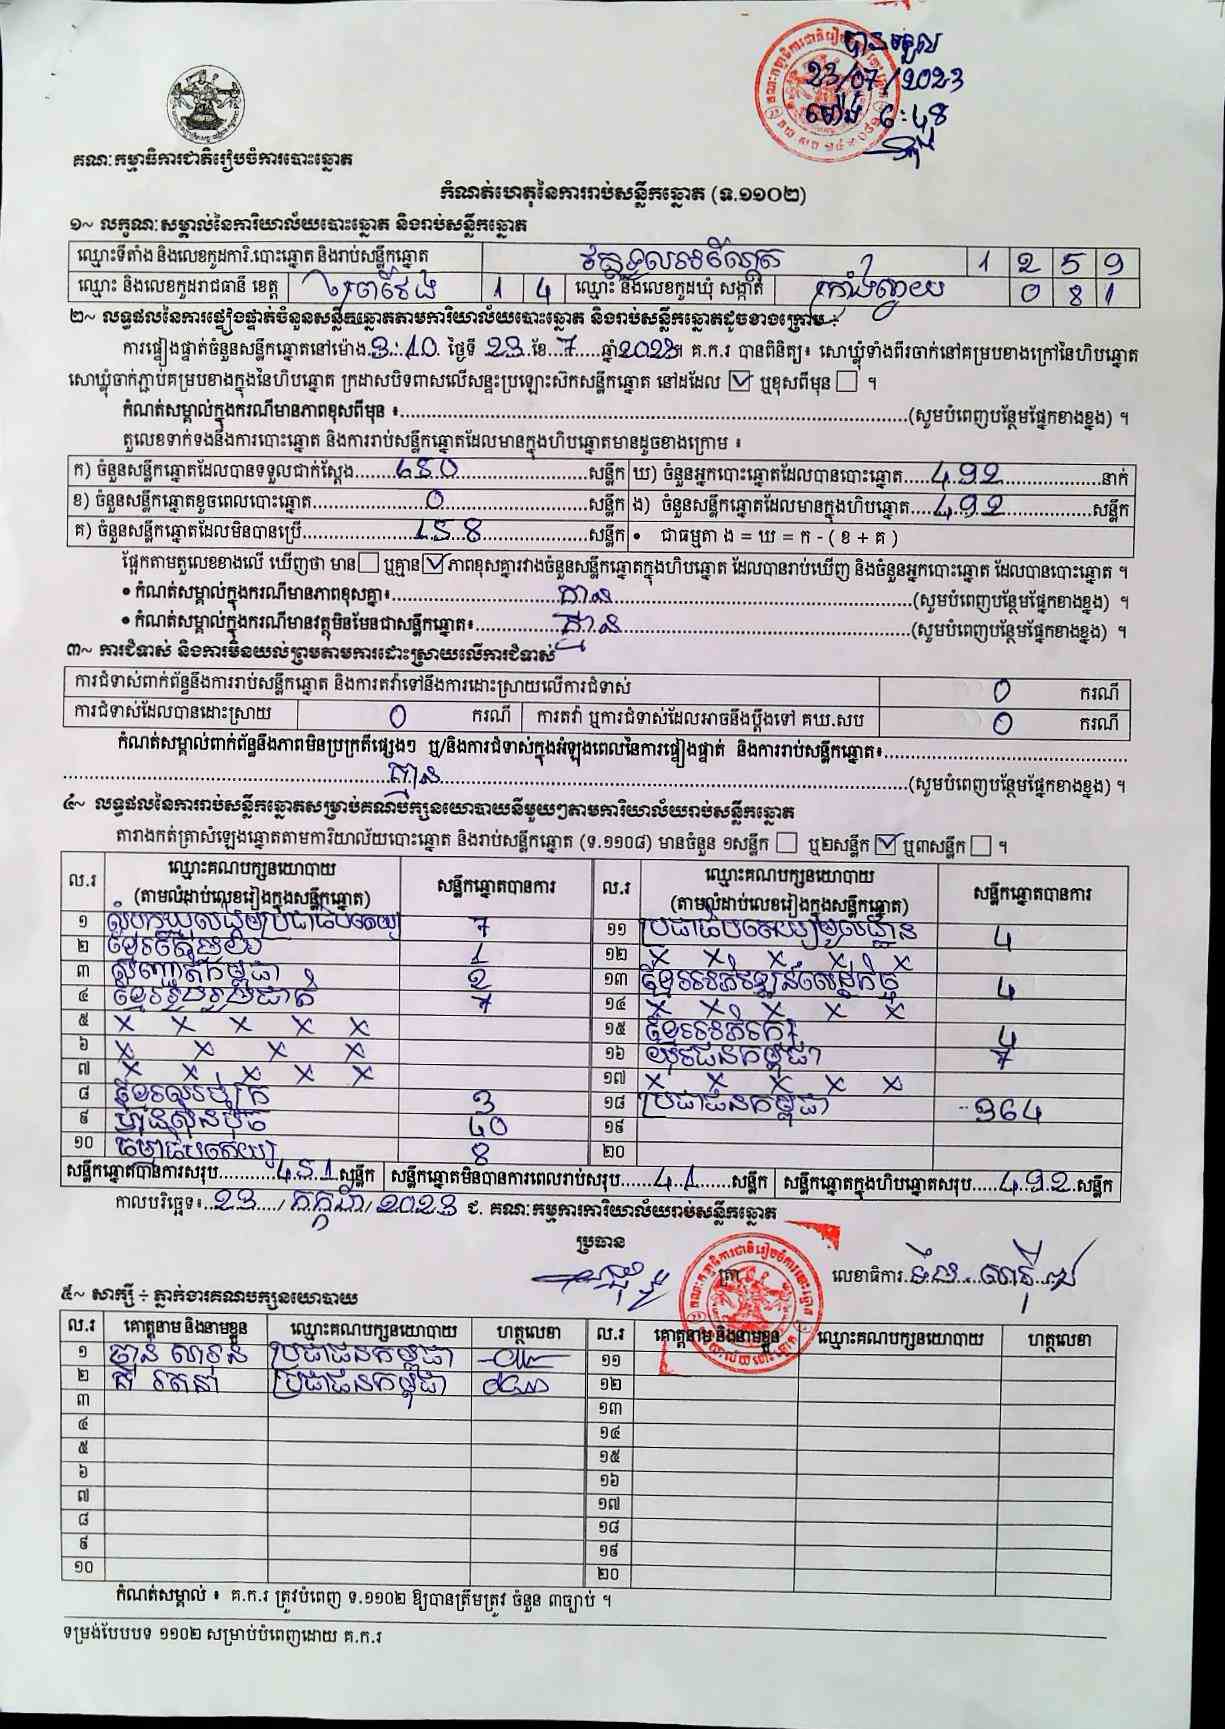 បានទទួល
23/07/2023
ម៉ោង 6:48
គណៈកម្មាធិការជាតិរៀបចំការបោះឆ្នោត
កំណត់ហេតុនៃការរាប់សន្លឹកឆ្នោត (ទ.១១០២)
១~ លក្ខណៈសម្គាល់នៃការិយាល័យបោះឆ្នោត និងរាប់សន្លឹកឆ្នោត
ឈ្មោះទីតាំង និងលេខកូដការិ.បោះឆ្នោត និងរាប់សន្លឹកឆ្នោត 1 2 5 9
ឈ្មោះ និងលេខកូដរាជធានី ខេត្ត ព្រៃវែង 1 4 ឈ្មោះ និងលេខកូដឃុំ សង្កាត់ ក្រាំងស្វាយ 0 8 1
២~ លទ្ធផលនៃការផ្ទៀងផ្ទាត់ចំនួនសន្លឹកឆ្នោតតាមការិយាល័យបោះឆ្នោត និងរាប់សន្លឹកឆ្នោតដូចខាងក្រោម ÷
ការផ្ទៀងផ្ទាត់ចំនួនសន្លឹកឆ្នោតនៅម៉ោង.3:10. ថ្ងៃទី 23 ខែ 7 ឆ្នាំ2023។ គ.ក.រ បានពិនិត្យ៖ សោឃ្លុំទាំងពីរចាក់នៅគម្របខាងក្រៅនៃហិបឆ្នោត
សោឃ្លុំចាក់ភ្ជាប់គម្របខាងក្នុងនៃហិបឆ្នោត ក្រដាសបិទពាសលើសន្ទះប្រឡោះស៊កសន្លឹកឆ្នោត នៅដដែល ☑ ឬខុសពីមុន ☐ ។
កំណត់សម្គាល់ក្នុងករណីមានភាពខុសពីមុន ៖..........(សូមបំពេញបន្ថែមផ្នែកខាងខ្នង) ។
តួលេខទាក់ទងនឹងការបោះឆ្នោត និងការរាប់សន្លឹកឆ្នោតដែលមានក្នុងហិបឆ្នោតមានដូចខាងក្រោម ៖
ក) ចំនួនសន្លឹកឆ្នោតដែលបានទទួលជាក់ស្តែង..........650..........សន្លឹក ឃ) ចំនួនអ្នកបោះឆ្នោតដែលបានបោះឆ្នោត.....492..........នាក់
ខ) ចំនួនសន្លឹកឆ្នោតខូចពេលបោះឆ្នោត..........0..........សន្លឹក ង) ចំនួនសន្លឹកឆ្នោតដែលមានក្នុងហិបឆ្នោត.....492..........សន្លឹក
គ) ចំនួនសន្លឹកឆ្នោតដែលមិនបានប្រើ..........158..........សន្លឹក • ជាធម្មតា ង = ឃ = ក - ( ខ + គ )
ផ្អែកតាមតួលេខខាងលើ ឃើញថា មាន ☐ ឬគ្មាន ☑ ភាពខុសគ្នារវាងចំនួនសន្លឹកឆ្នោតក្នុងហិបឆ្នោត ដែលបានរាប់ឃើញ និងចំនួនអ្នកបោះឆ្នោត ដែលបានបោះឆ្នោត ។
• កំណត់សម្គាល់ក្នុងករណីមានភាពខុសគ្នា៖..........គ្មាន..........(សូមបំពេញបន្ថែមផ្នែកខាងខ្នង) ។
• កំណត់សម្គាល់ក្នុងករណីមានវត្ថុមិនមែនជាសន្លឹកឆ្នោត៖..........គ្មាន..........(សូមបំពេញបន្ថែមផ្នែកខាងខ្នង) ។
៣~ ការជំទាស់ និងការមិនយល់ព្រមតាមការដោះស្រាយលើការជំទាស់
ការជំទាស់ពាក់ព័ន្ធនឹងការរាប់សន្លឹកឆ្នោត និងការតវ៉ាទៅនឹងការដោះស្រាយលើការជំទាស់ 0 ករណី
ការជំទាស់ដែលបានដោះស្រាយ 0 ករណី ការតវ៉ា ឬការជំទាស់ដែលអាចនឹងប្តឹងទៅ គឃ.សប 0 ករណី
កំណត់សម្គាល់ពាក់ព័ន្ធនឹងភាពមិនប្រក្រតីផ្សេងៗ ឬ/និងការជំទាស់ក្នុងអំឡុងពេលនៃការផ្ទៀងផ្ទាត់ និងការរាប់សន្លឹកឆ្នោត៖..........
..........គ្មាន..........(សូមបំពេញបន្ថែមផ្នែកខាងខ្នង) ។
៤~ លទ្ធផលនៃការរាប់សន្លឹកឆ្នោតសម្រាប់គណបក្សនយោបាយនីមួយៗតាមការិយាល័យរាប់សន្លឹកឆ្នោត
តារាងកត់ត្រាសំឡេងឆ្នោតតាមការិយាល័យបោះឆ្នោត និងរាប់សន្លឹកឆ្នោត (ទ.១១០៨) មានចំនួន ១សន្លឹក ☐ ឬ២សន្លឹក ☑ ឬ៣សន្លឹក ☐ ។
ល.រ ឈ្មោះគណបក្សនយោបាយ (តាមលំដាប់លេខរៀងក្នុងសន្លឹកឆ្នោត) សន្លឹកឆ្នោតបានការ ល.រ ឈ្មោះគណបក្សនយោបាយ (តាមលំដាប់លេខរៀងក្នុងសន្លឹកឆ្នោត) សន្លឹកឆ្នោតបានការ
១ សំបុកឃ្មុំសង្គមប្រជាធិបតេយ្យ 7 ១១ ប្រជាធិបតេយ្យមូលដ្ឋាន 4
២ 1 ១២ x x x x x
៣ សញ្ជាតិកម្ពុជា 2 ១៣ ខ្មែរអភិវឌ្ឍន៍សេដ្ឋកិច្ច 4
៤ ខ្មែររួបរួមជាតិ 7 ១៤ x x x x x
៥ x x x x x ១៥ ខ្មែរអភិរក្ស 4
៦ x x x x ១៦ យុវជនកម្ពុជា 7
៧ x x x x x ១៧ x x x x x
៨ 3 ១៨ ប្រជាជនកម្ពុជា 364
៩ ហ៊្វុនស៊ិនប៉ិច 40 ១៩
១០ ធម្មាធិបតេយ្យ 8 ២០
សន្លឹកឆ្នោតបានការសរុប.....451.សន្លឹក សន្លឹកឆ្នោតមិនបានការពេលរាប់សរុប.....41.....សន្លឹក សន្លឹកឆ្នោតក្នុងហិបឆ្នោតសរុប....492.សន្លឹក
កាលបរិច្ឆេទ៖..23../ កក្កដា / 2023 ជ. គណៈកម្មការការិយាល័យរាប់សន្លឹកឆ្នោត
ប្រធាន
ត្រា លេខាធិការ
៥~ សាក្សី ÷ ភ្នាក់ងារគណបក្សនយោបាយ
ល.រ គោត្តនាម និងនាមខ្លួន ឈ្មោះគណបក្សនយោបាយ ហត្ថលេខា ល.រ គោត្តនាម និងនាមខ្លួន ឈ្មោះគណបក្សនយោបាយ ហត្ថលេខា
១ ប្រជាជនកម្ពុជា ១១
២ ប្រជាជនកម្ពុជា ១២
៣ ១៣
៤ ១៤
៥ ១៥
៦ ១៦
៧ ១៧
៨ ១៨
៩ ១៩
១០ ២០
កំណត់សម្គាល់ ៖ គ.ក.រ ត្រូវបំពេញ ទ.១១០២ ឱ្យបានត្រឹមត្រូវ ចំនួន ៣ច្បាប់ ។
ទម្រង់បែបបទ ១១០២ សម្រាប់បំពេញដោយ គ.ក.រ